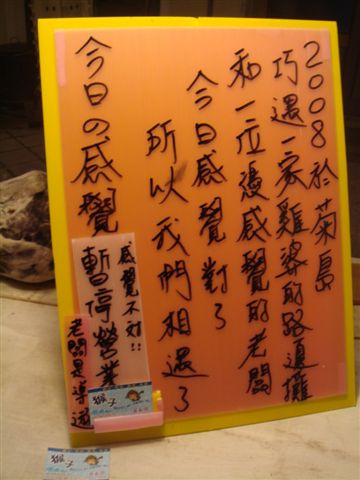 2008於菊島
巧遇一家雞婆的路邊攤
和一位邊感覺的老闆
今日感覺對了
所以我們相遇了
今日の感覺
感覺不對!!
暫停營業
老闆是導遊
猴子
猴子